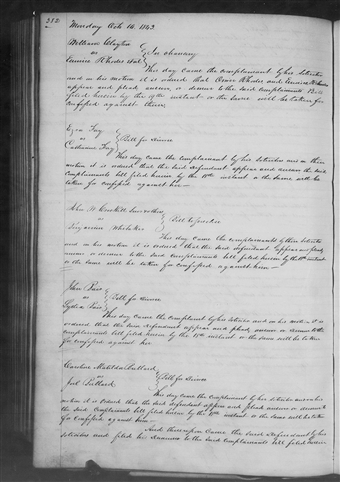 212
Monday Oct 16. 1843
William Clayton
vs In chancery
Rhodes
This day came the complainant by his Solicitor
and on his motion it is ordered that Rhodes and
appear and plead, answer, or demur to the said Complainants Bill
filed herein by the instant or the same will be taken for
confessed against them.
Ezra Fry
vs Bill for divorce
Catharine Fry
This day came the complainant by his Solicitor and on his
motion it is ordered that the said defendant appear and the said
Complainants bill filed herein by the 18th instant or the same will be
taken for confessed against her
John W.
vs Bill
Whitaker
This day came the complainants by their Solicitor
and on his motion it is ordered that the said defendant appear and plead,
answer or demur to the said complainants bill filed herein by the instant
or the same will be taken for confessed against
John
vs Bill for divorce
Lydia
This day came the complainant by his Solicitor and on his motion it is
ordered that the said defendant appear and plead, answer or demur to the
complainants bill filed herein by the instant or the same will be taken
for confessed against her
Caroline Matilda Bullard
vs Bill for divorce
Joel Bullard
This day came the Complainant by her Solicitor and on his
motion it is ordered that the said defendant appear and plead answer or demur to
the said Complainants bill filed herein by the instant or the same will be taken
for confessed against him
And thereupon Came the said defendant by his
Solicitor and filed his answer to the said Complainants bill filed herein